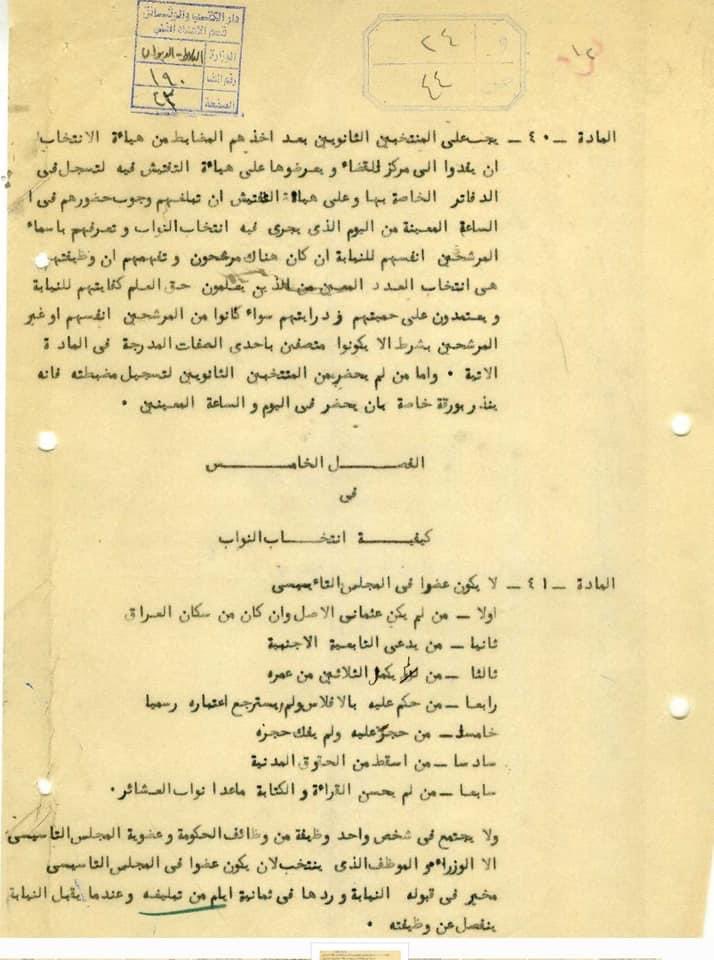 دار الكتب والوثائق
الوزارة البلاط - الديوان
رقم الملف ١٩٠
الصفحة ٤٣
و ٢٤
ص ٤٤
١٢
المادة ــ ٤٠ ــ يجب على المنتخبين الثانويين بعد اخذهم المضابط من هياءة الانتخاب
ان يفدوا الى مركز القضاء و يعرضوها على هياءة التفتيش فيه لتسجل فى
الدفاتر الخاصة بها وعلى هياءة التفتيش ان تبلغهم وجوب حضورهم فى ا
الساعة المعينة من اليوم الذى يجرى فيه انتخاب النواب و تعرفهم باسماء
المرشحين انفسهم للنيابة ان كان هناك مرشحون و تفهمهم ان وظيفتهم
هى انتخاب العدد المعين من الذين يعلمون حق العلم كفايتهم للنيابة
و يعتمدون على حميتهم و درايتهم سواء كانوا من المرشحين انفسهم او غير
المرشحين بشرط الا يكونوا متصفين باحدى الصفات المدرجة فى المادة
الاتية ٠ واما من لم يحضر من المنتخبين الثانويين لتسجيل مضبطته فانه
ينذر بورقة خاصة بان يحضر فى اليوم و الساعة المعينين ٠
الفصــل الخامــس
فى
كيفيــة انتخــاب النواب
المادة ــ ٤١ ــ لا يكون عضوا فى المجلس التاءسيسى
اولا ــ من لم يكن عثمانى الاصل وان كان من سكان العراق
ثانيا ــ من يدعى التابعية الاجنبية
ثالثا ــ من لم يكمل الثلاثين من عمره
رابعا ــ من حكم عليه بالافلاس ولم يسترجع اعتباره رسميا
خامسا ــ من حجر عليه ولم يفك حجزه
سادسا ــ من اسقط من الحقوق المدنية
سابعا ــ من لم يحسن القراءة و الكتابة ماعدا نواب العشائر ٠
ولا يجتمع فى شخص واحد وظيفة من وظائف الحكومة وعضوية المجلس التاسيسى
الا الوزراء و الموظف الذى ينتخب لان يكون عضوا فى المجلس التاسيسى
مخير فى قبوله النيابة و ردها فى ثمانية ايام من تبليغه و عندما يقبل النيابة
ينفصل عن وظيفته ٠